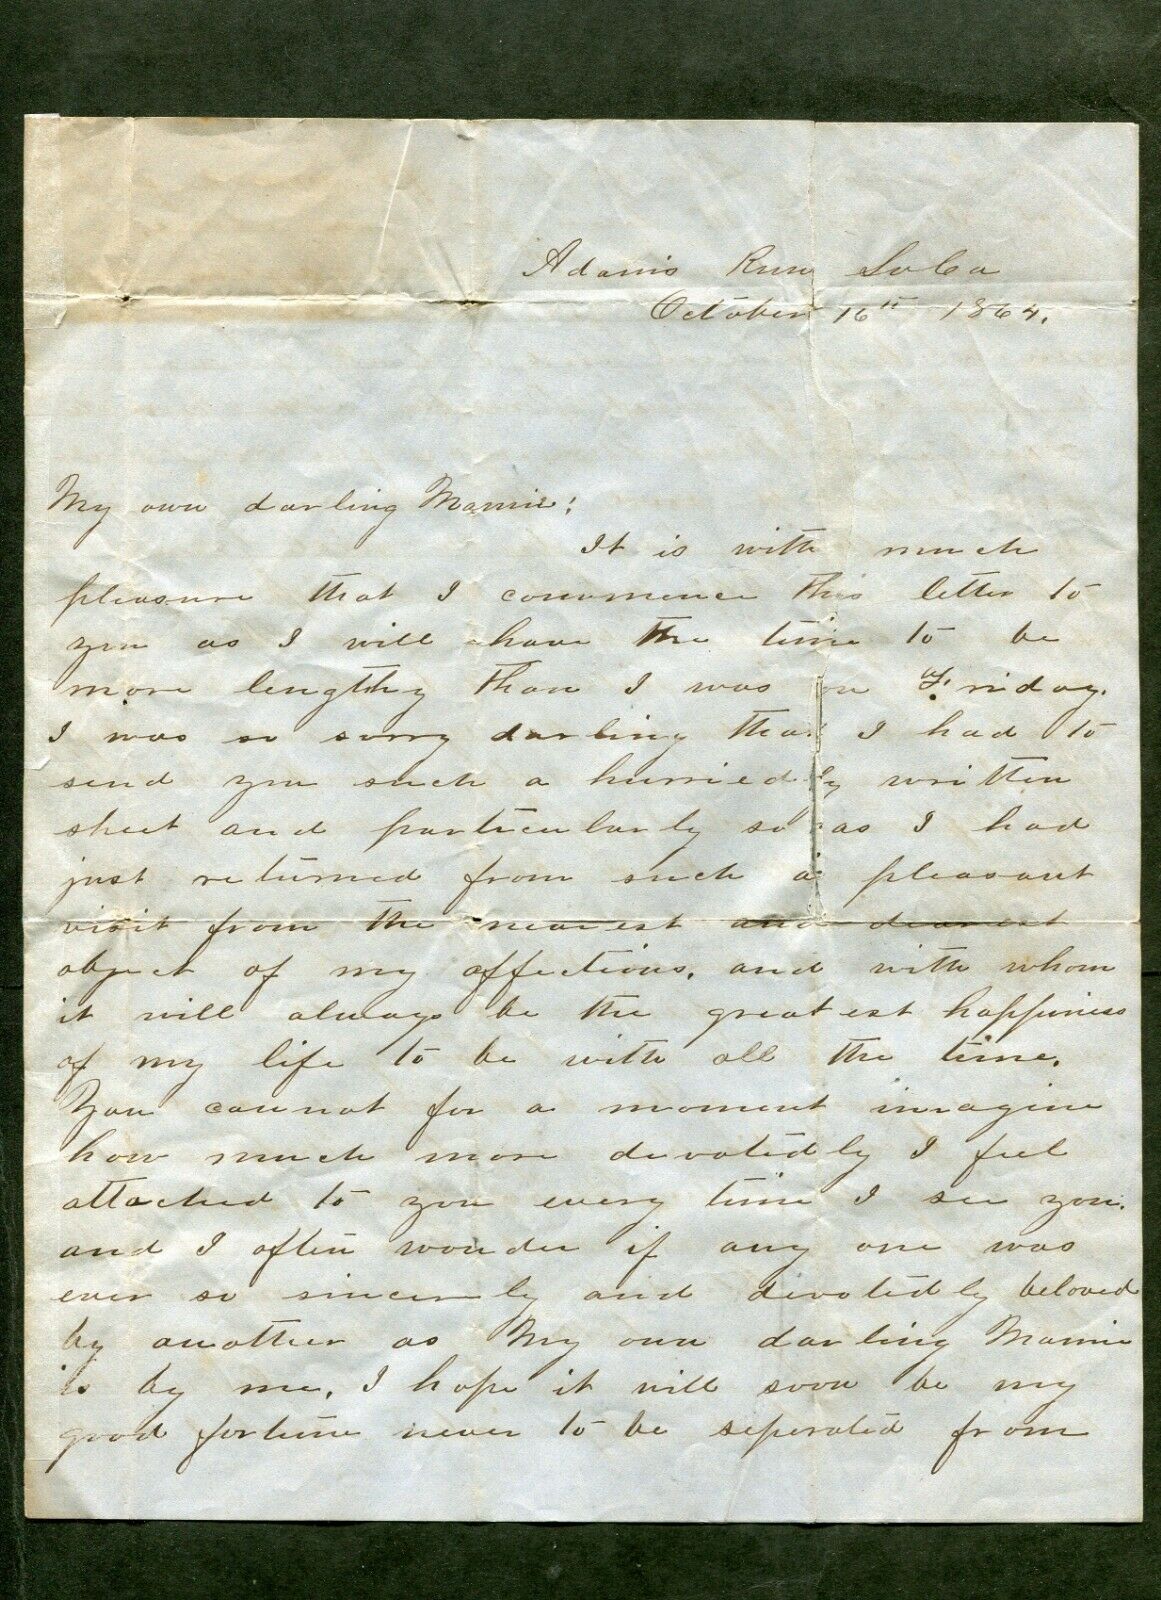 Adams Run So Ca
October 16th 1864.
My own darling Mamie;
It is with much
pleasure that I commence this letter to
you as I will have the time to be
more lengthy than I was on Friday.
I was so sorry darling that I had to
send you such a hurriedly written
sheet and particularly so as I had
just returned from such a pleasant
visit from the nearest and dearest
object of my affections, and with whom
it will always be the greatest happiness
of my life to be with all the time.
You cannot for a moment imagine
how much more devotedly I feel
attached to you every time I see you.
and I often wonder if any one was
ever so sincerely and devotedly beloved
by another as My own darling Mamie
is by me. I hope it will soon be my
good fortune never to be seperated from